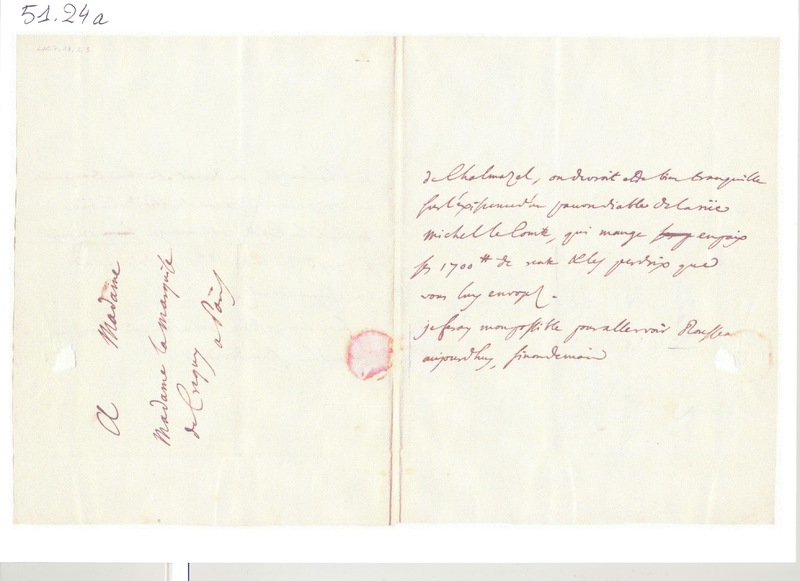 51.24a
A Madame
Madame la marquise
de Crequy a Paris
de Chalmazel, on devroit etre bien tranquille
sur l'existence d'un pauvre diable de la rüe
Michel le Comte, qui mange en paix
ses 1700 ** de rente & les perdrix que
vous luy envoyez.
je feray mon possible pour aller voir Rousseau
aujourd'huy, sinon demain